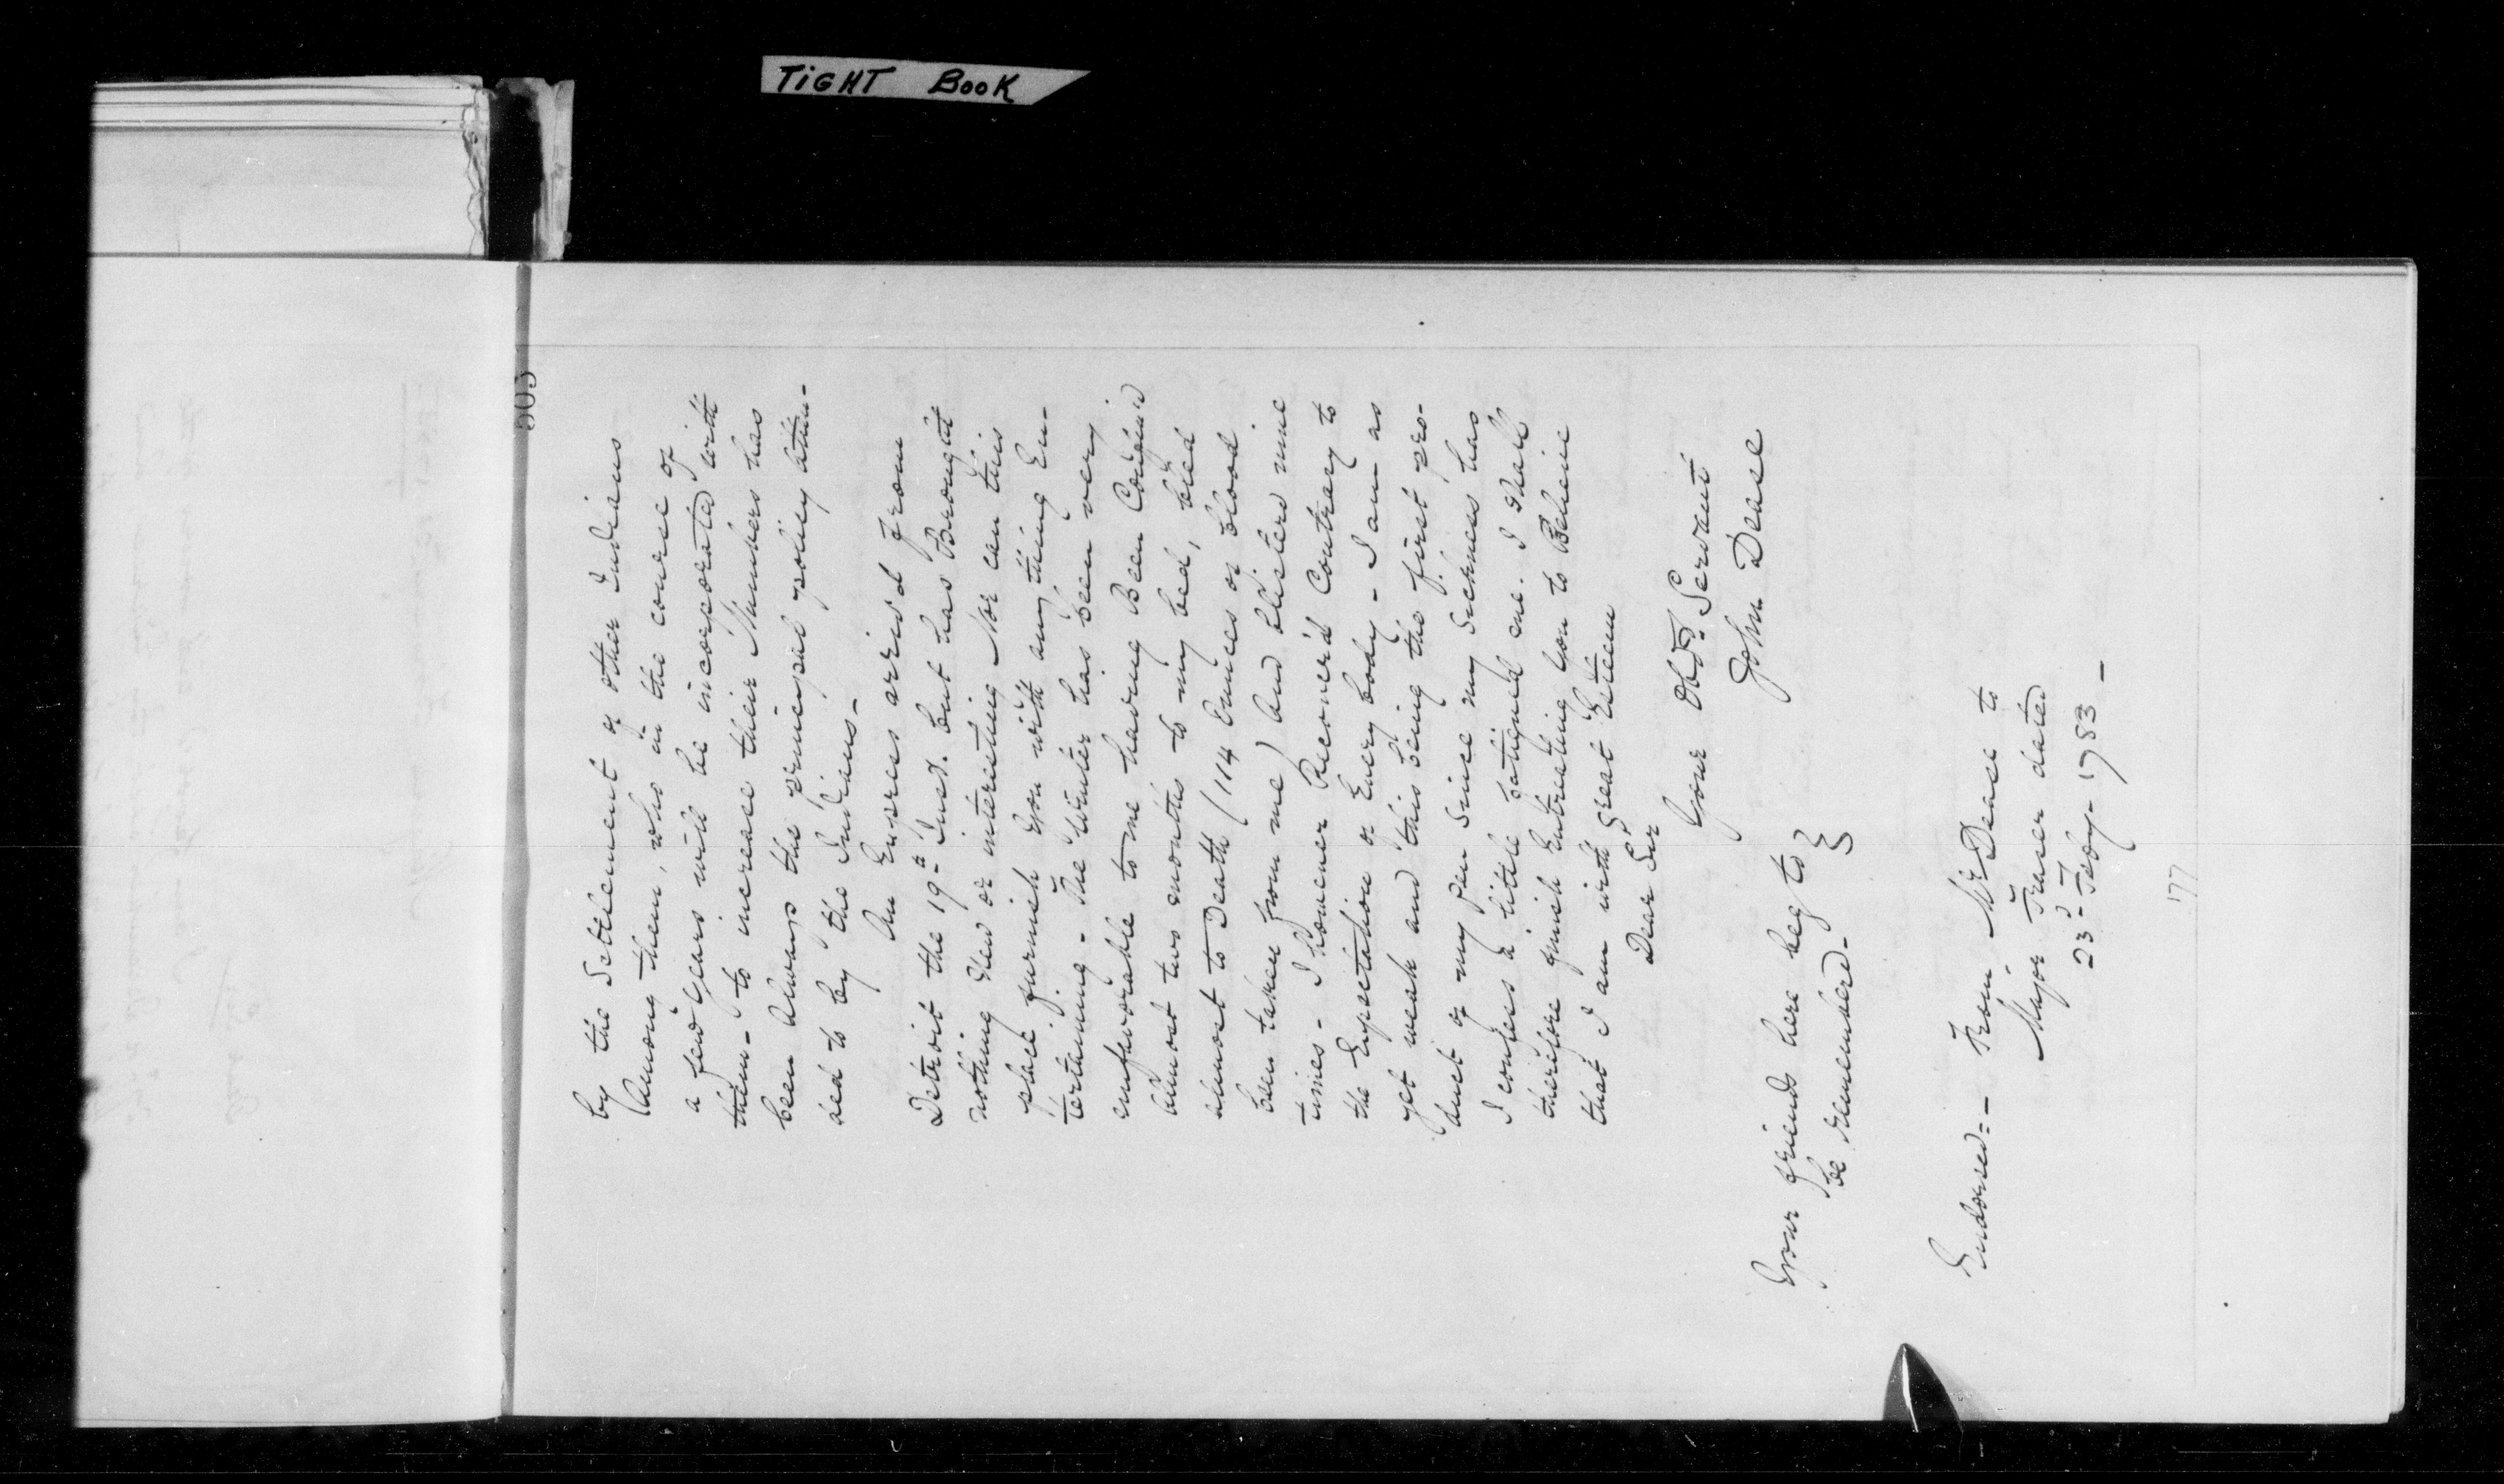 TIGHT BOOK
503
by the Settlement of other Indians
Among them, who in the course of
a few years will be incorporated with
them - to increase their Numbers has
been Always the principal policy atten-
ded to by the Indians -
An Express arriv'd from
Detroit the 19th Inst. but has Brought
nothing New or interesting Nor can this
place furnish you with any thing En-
tertaining - The Winter has been very
unfavorable to me having Been Confined
Almost two months to my bed, bled
almost to Death (114 Ounces of blood
been taken from me) And blisterd nine
times - I however Recover'd Contrary to
the Expectation of Every body - I am as
yet weak and this being the first pro-
duct of my pen Since my Sickness has
I confess a little fatigued me. I shall
therefore finish Entreating you to Believe
that I am with great Esteem
Dear Sir
Your Obdt. Servant
John Dease
Your friends here beg to }
be remembered -
Endorsed:- From Mr Dease to
Major Fraser dated
23d Feby - 1783 -
177